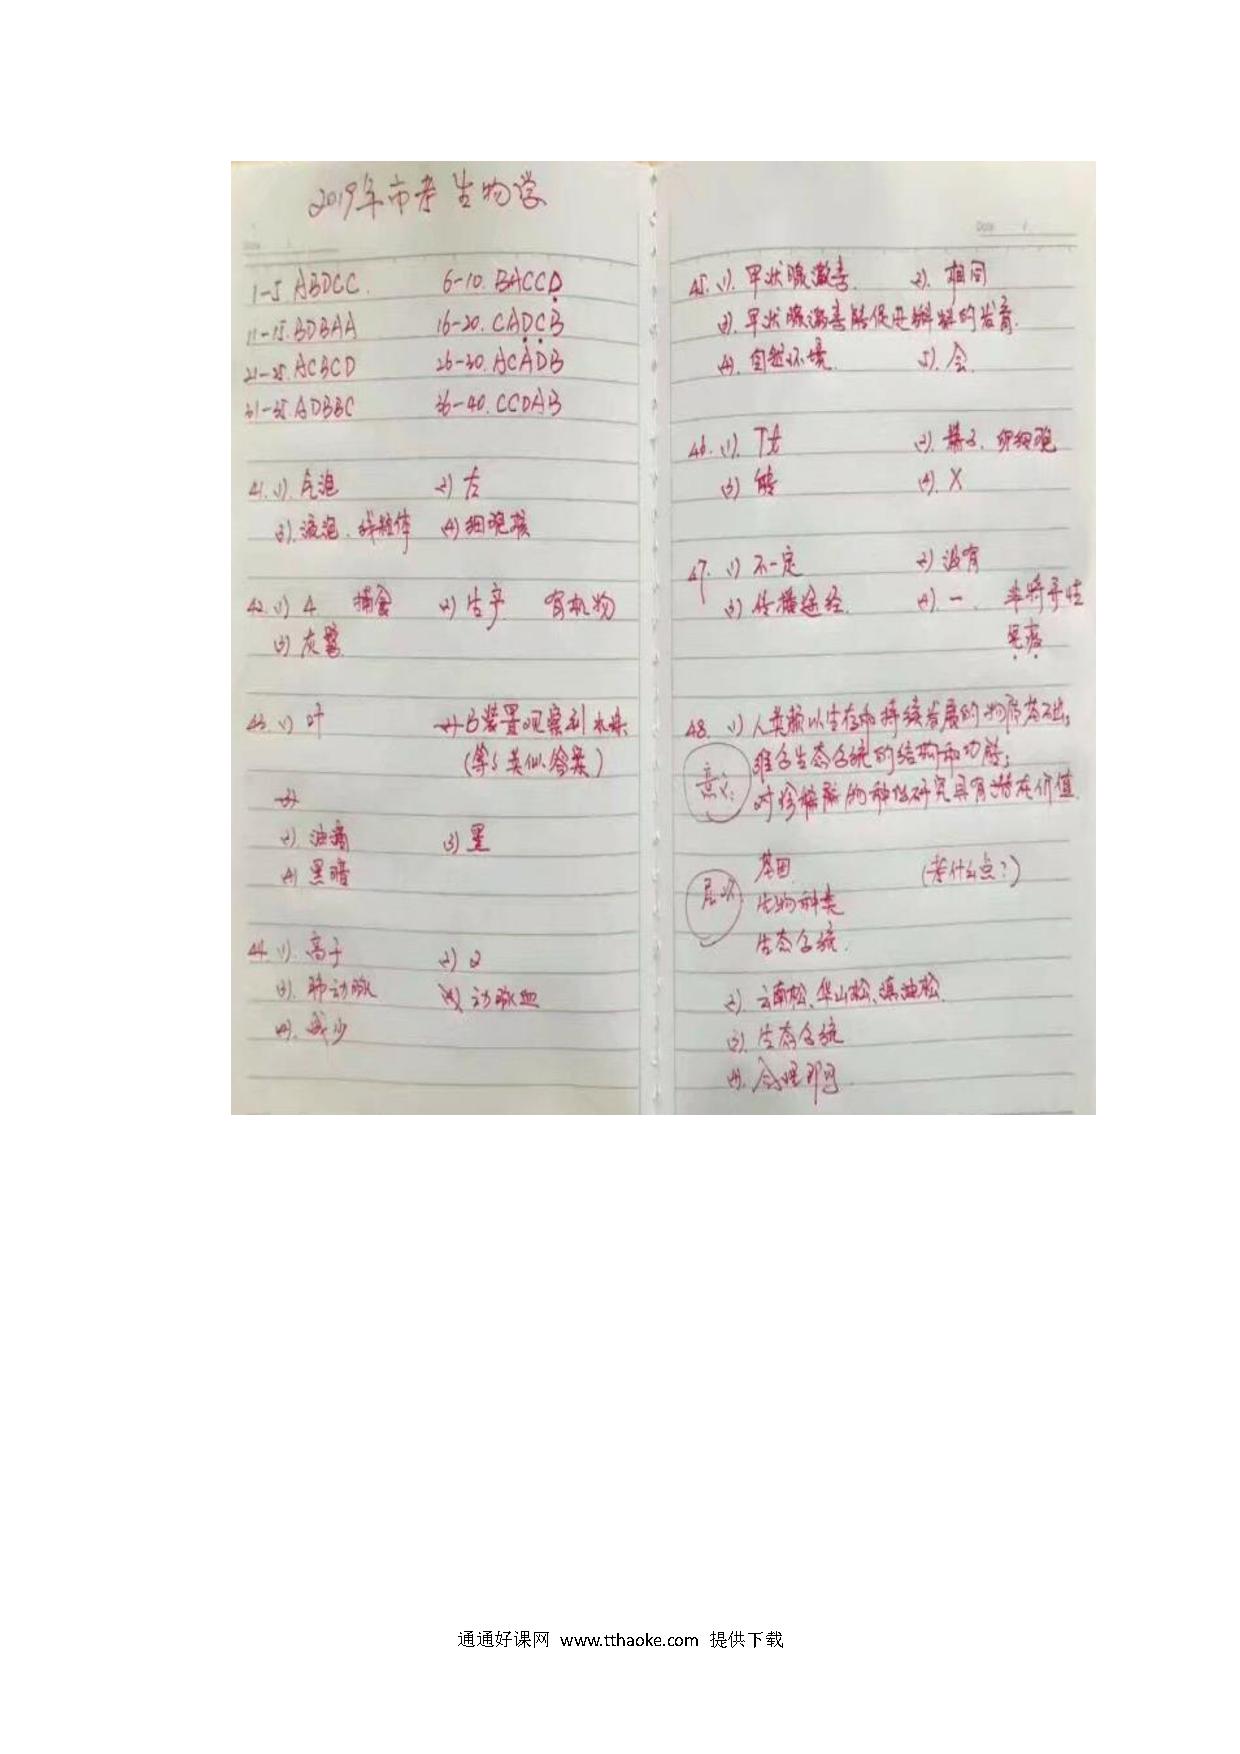 2019年市考生物学
1-5 ABDCC. 6-10. BACCD
11-15. BDBAA 16-20. CADCB
21-25. ACBCD 26-30. ACADB
31-35. ADBBC 36-40. CCDAB
41. (1). 气泡 (2) 左
(3). 液泡、线粒体 (4) 细胞核
42. (1) 4 捕食 (2) 生产 有机物
(3) 灰鹭
43. (1) 叶 B装置观察到水珠
(等等类似答案)
(2) 油滴 (3) 量
(4) 黑暗
44. (1). 高于 (2) 2
(3). 肺动脉 动脉血
(4). 减少
45. (1). 甲状腺激素. (2). 相同
(3). 甲状腺激素能促进蝌蚪的发育.
(4). 自然环境. (5). 会.
46. (1). Tt (2). 精子、卵细胞
(3) 能 (4). X
47. (1) 不一定 (2) 没有
(3) 传播途径. (4). 一、 非特异性
免疫
48. (1) 人类赖以生存和持续发展的物质基础;
意义: 维持生态系统的结构和功能;
对珍稀濒危物种的研究具有潜在价值.
层次 基因 (考什么点?)
生物种类
生态系统.
(2). 云南松、华山松、滇油松.
(3). 生态系统
(4). 合理即可.
Date
Date
通通好课网 www.tthaoke.com 提供下载